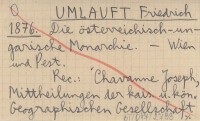 UMLAUFT Friedrich
1876. Die österreichisch-un-
garische Monarchie. — Wien
und Pest.
Rec.: Chavanne Joseph,
Mittheilungen der kais. u. kön.
Geographischen Gesellschaft